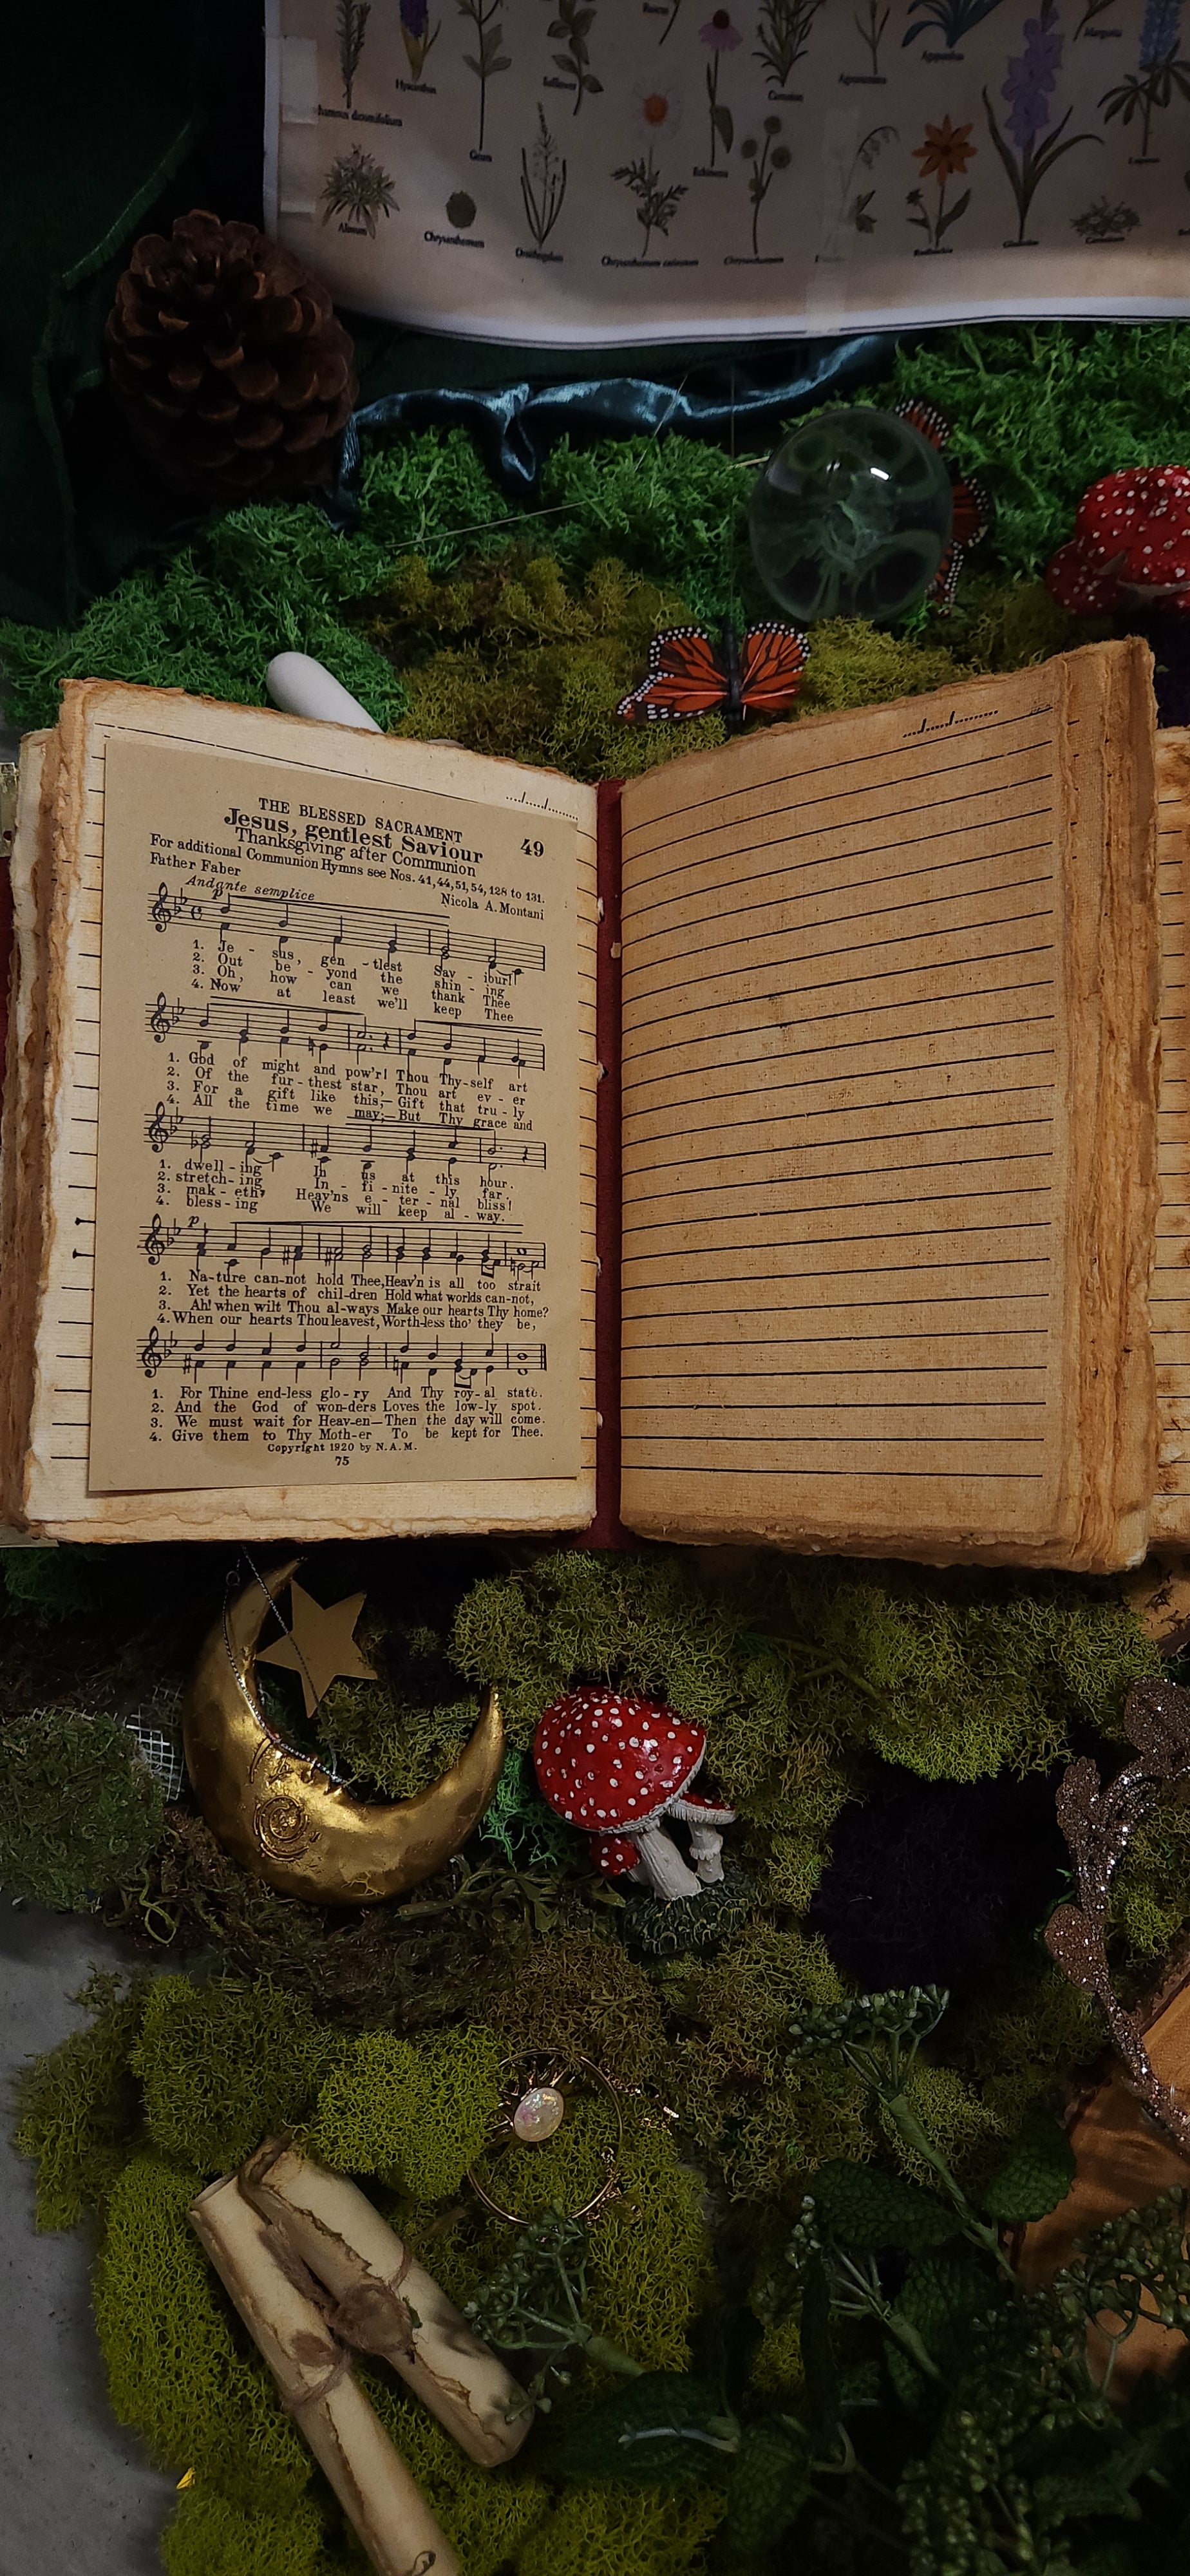 Hyacinthus
Alissum
Chrysanthemum
Chrysanthemum
THE BLESSED SACRAMENT
Jesus, gentlest Saviour
49
Thanksgiving after Communion
For additional Communion Hymns see Nos. 41, 44, 51, 54, 128 to 131.
Father Faber
Nicola A. Montani
Andante semplice
p
1. Je - sus, gen - tlest Sav - iour!
2. Out be - yond the shin - ing
3. Oh, how can we thank Thee
4. Now at least we'll keep Thee
1. God of might and pow'r! Thou Thy-self art
2. Of the fur - thest star, Thou art ev - er
3. For a gift like this,— Gift that tru - ly
4. All the time we may;— But Thy grace and
1. dwell - ing In us at this hour.
2. stretch - ing In - fi - nite - ly far.
3. mak - eth, Heav'ns e - ter - nal bliss!
4. bless - ing We will keep al - way.
p
1. Na-ture can-not hold Thee, Heav'n is all too strait
2. Yet the hearts of chil-dren Hold what worlds can-not,
3. Ah! when wilt Thou al-ways Make our hearts Thy home?
4. When our hearts Thou leavest, Worth-less tho' they be,
1. For Thine end-less glo - ry And Thy roy - al state.
2. And the God of won-ders Loves the low-ly spot.
3. We must wait for Heav-en— Then the day will come.
4. Give them to Thy Moth-er To be kept for Thee.
Copyright 1920 by N.A.M.
75